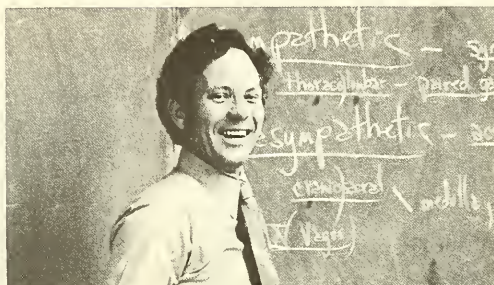 mpathetic - sy
thoracolumbar - paired g
esympathetic - as
craniosacral \ medulla
X (Vagus)